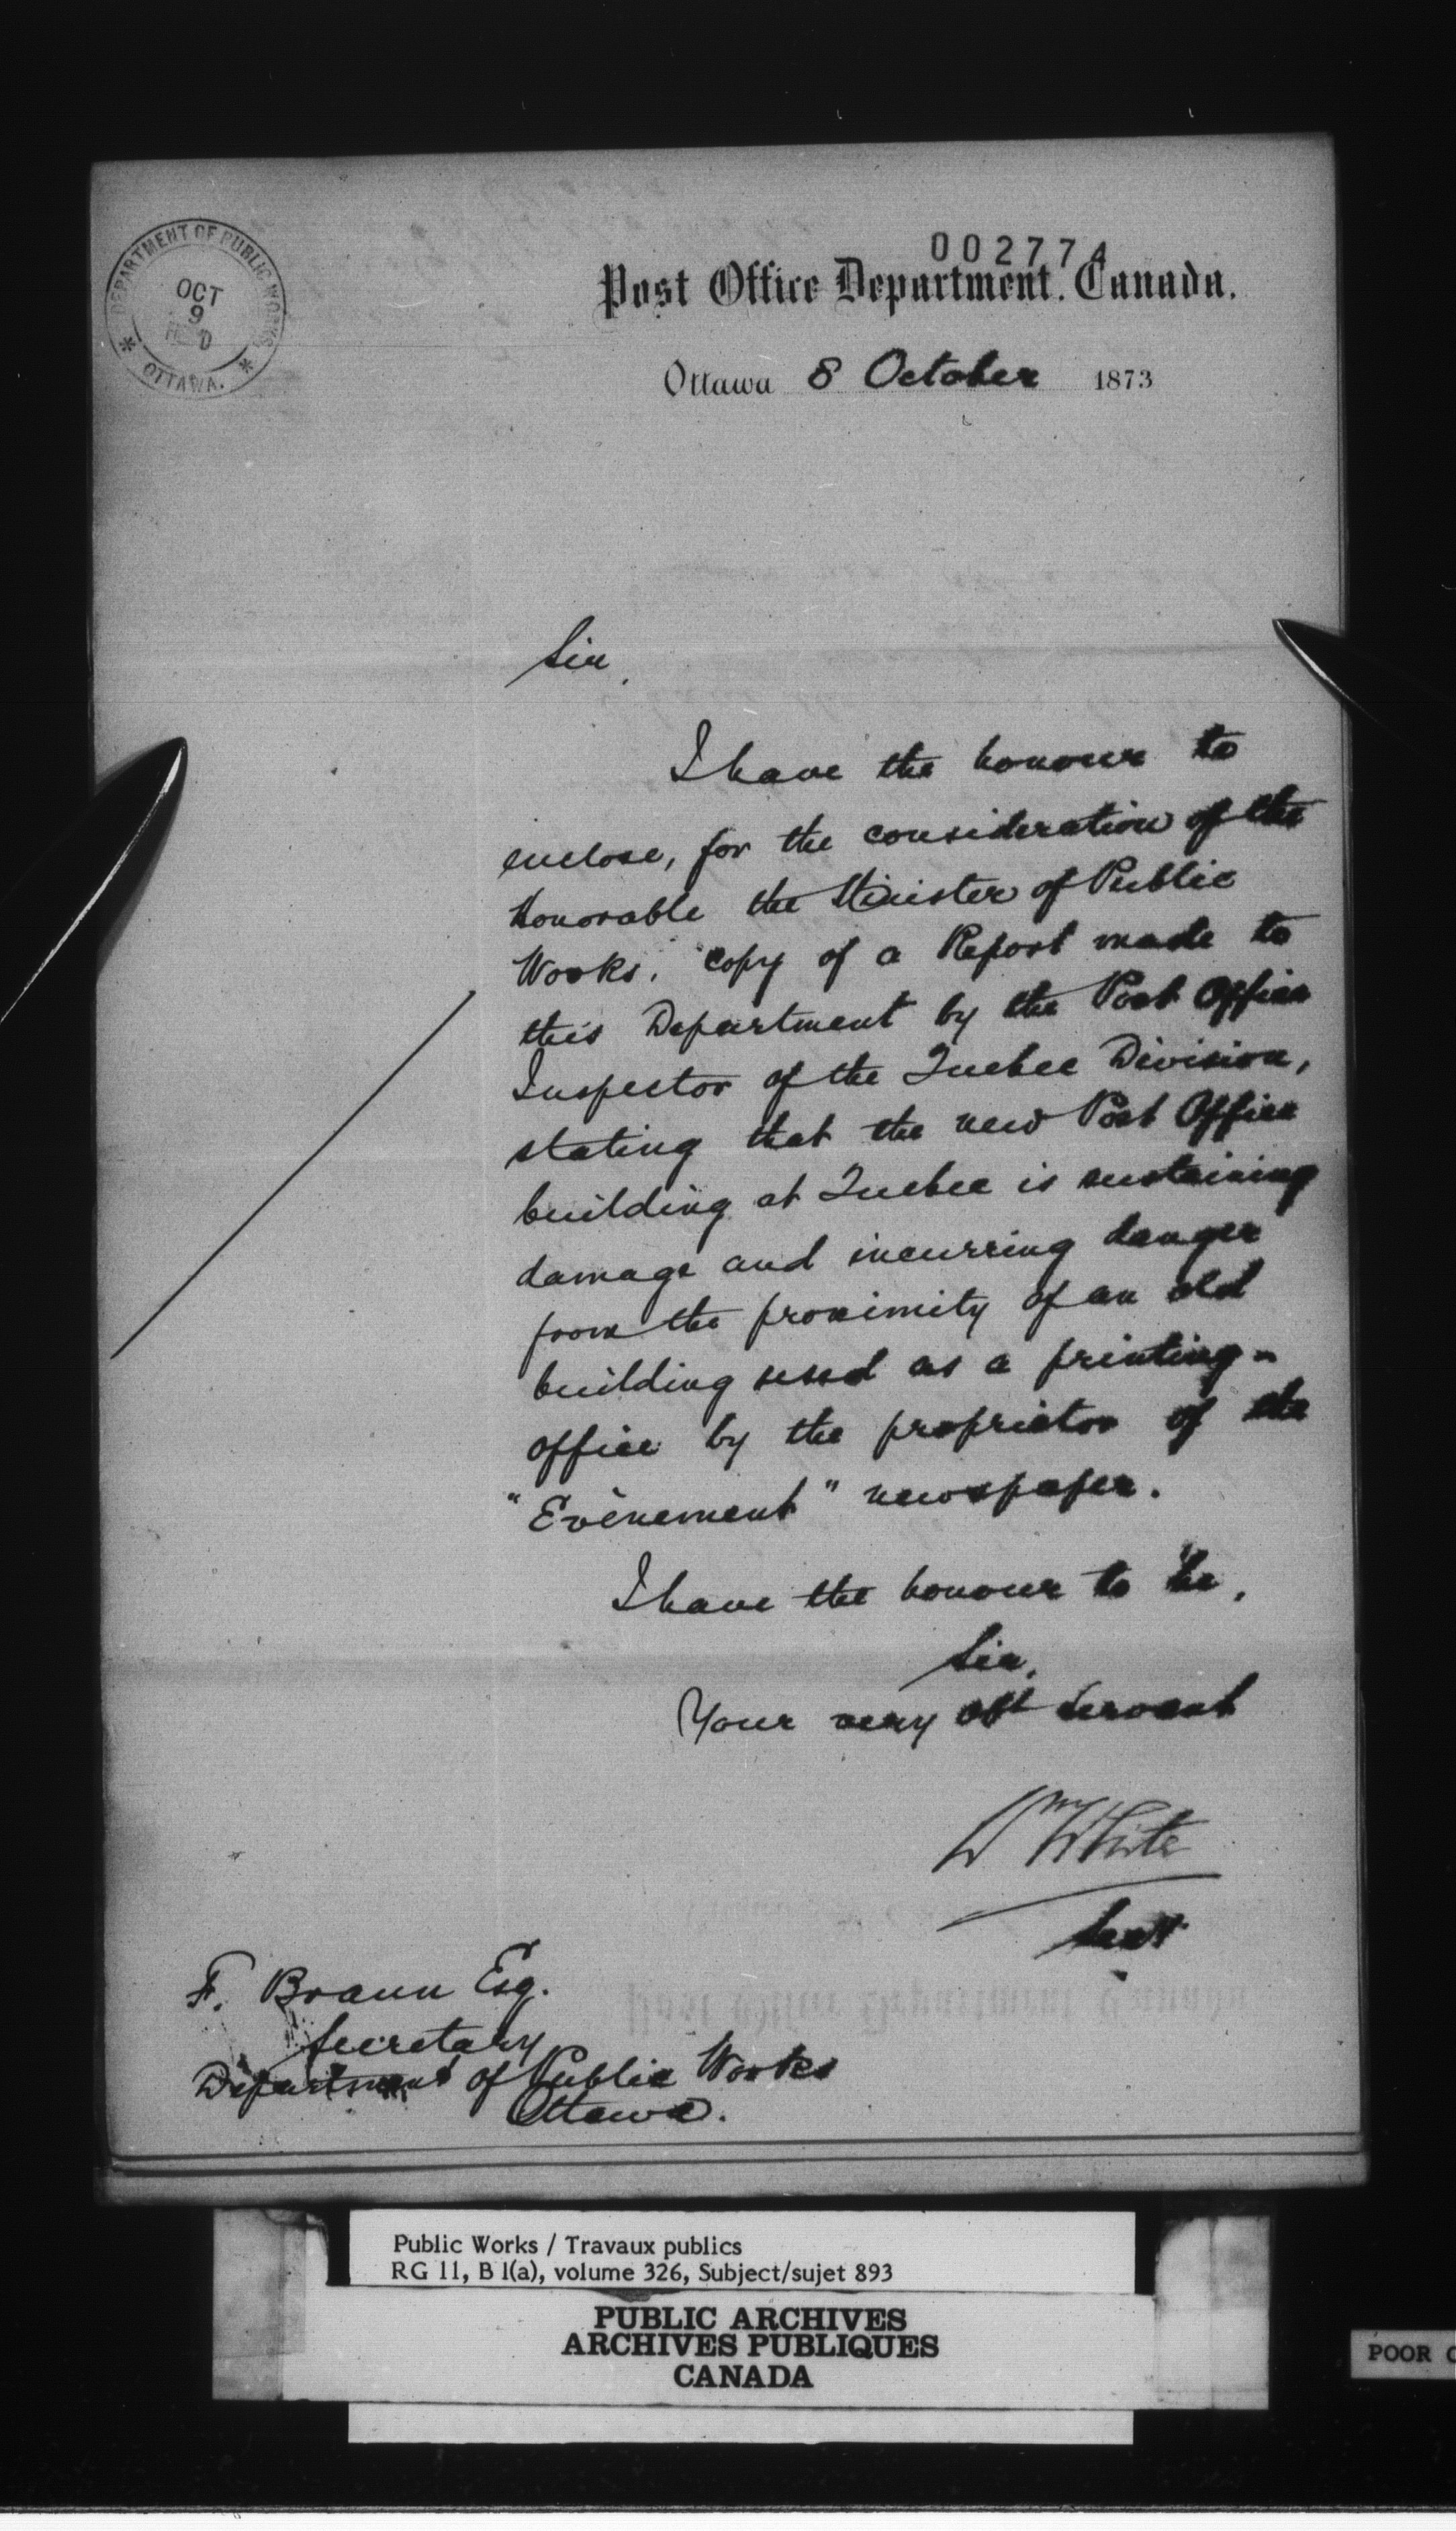 DEPARTMENT OF PUBLIC WORKS
OCT
9
OTTAWA.
002774
Post Office Department. Canada.
Ottawa 8 October 1873
Sir,
I have the honour to
enclose, for the consideration of the
Honorable the Minister of Public
Works, copy of a Report made to
this Department by the Post Office
Inspector of the Quebec Division,
stating that the new Post Office
building at Quebec is sustaining
damage and incurring danger
from the proximity of an old
building used as a printing-
office by the proprietor of the
"Evènement" newspaper.
I have the honour to be,
Sir,
Your very obt Servant
Wm White
Secy
F. Braun Esq.
Secretary
Department of Public Works
Ottawa.
Public Works / Travaux publics
RG 11, B 1(a), volume 326, Subject/sujet 893
PUBLIC ARCHIVES
ARCHIVES PUBLIQUES
CANADA
POOR